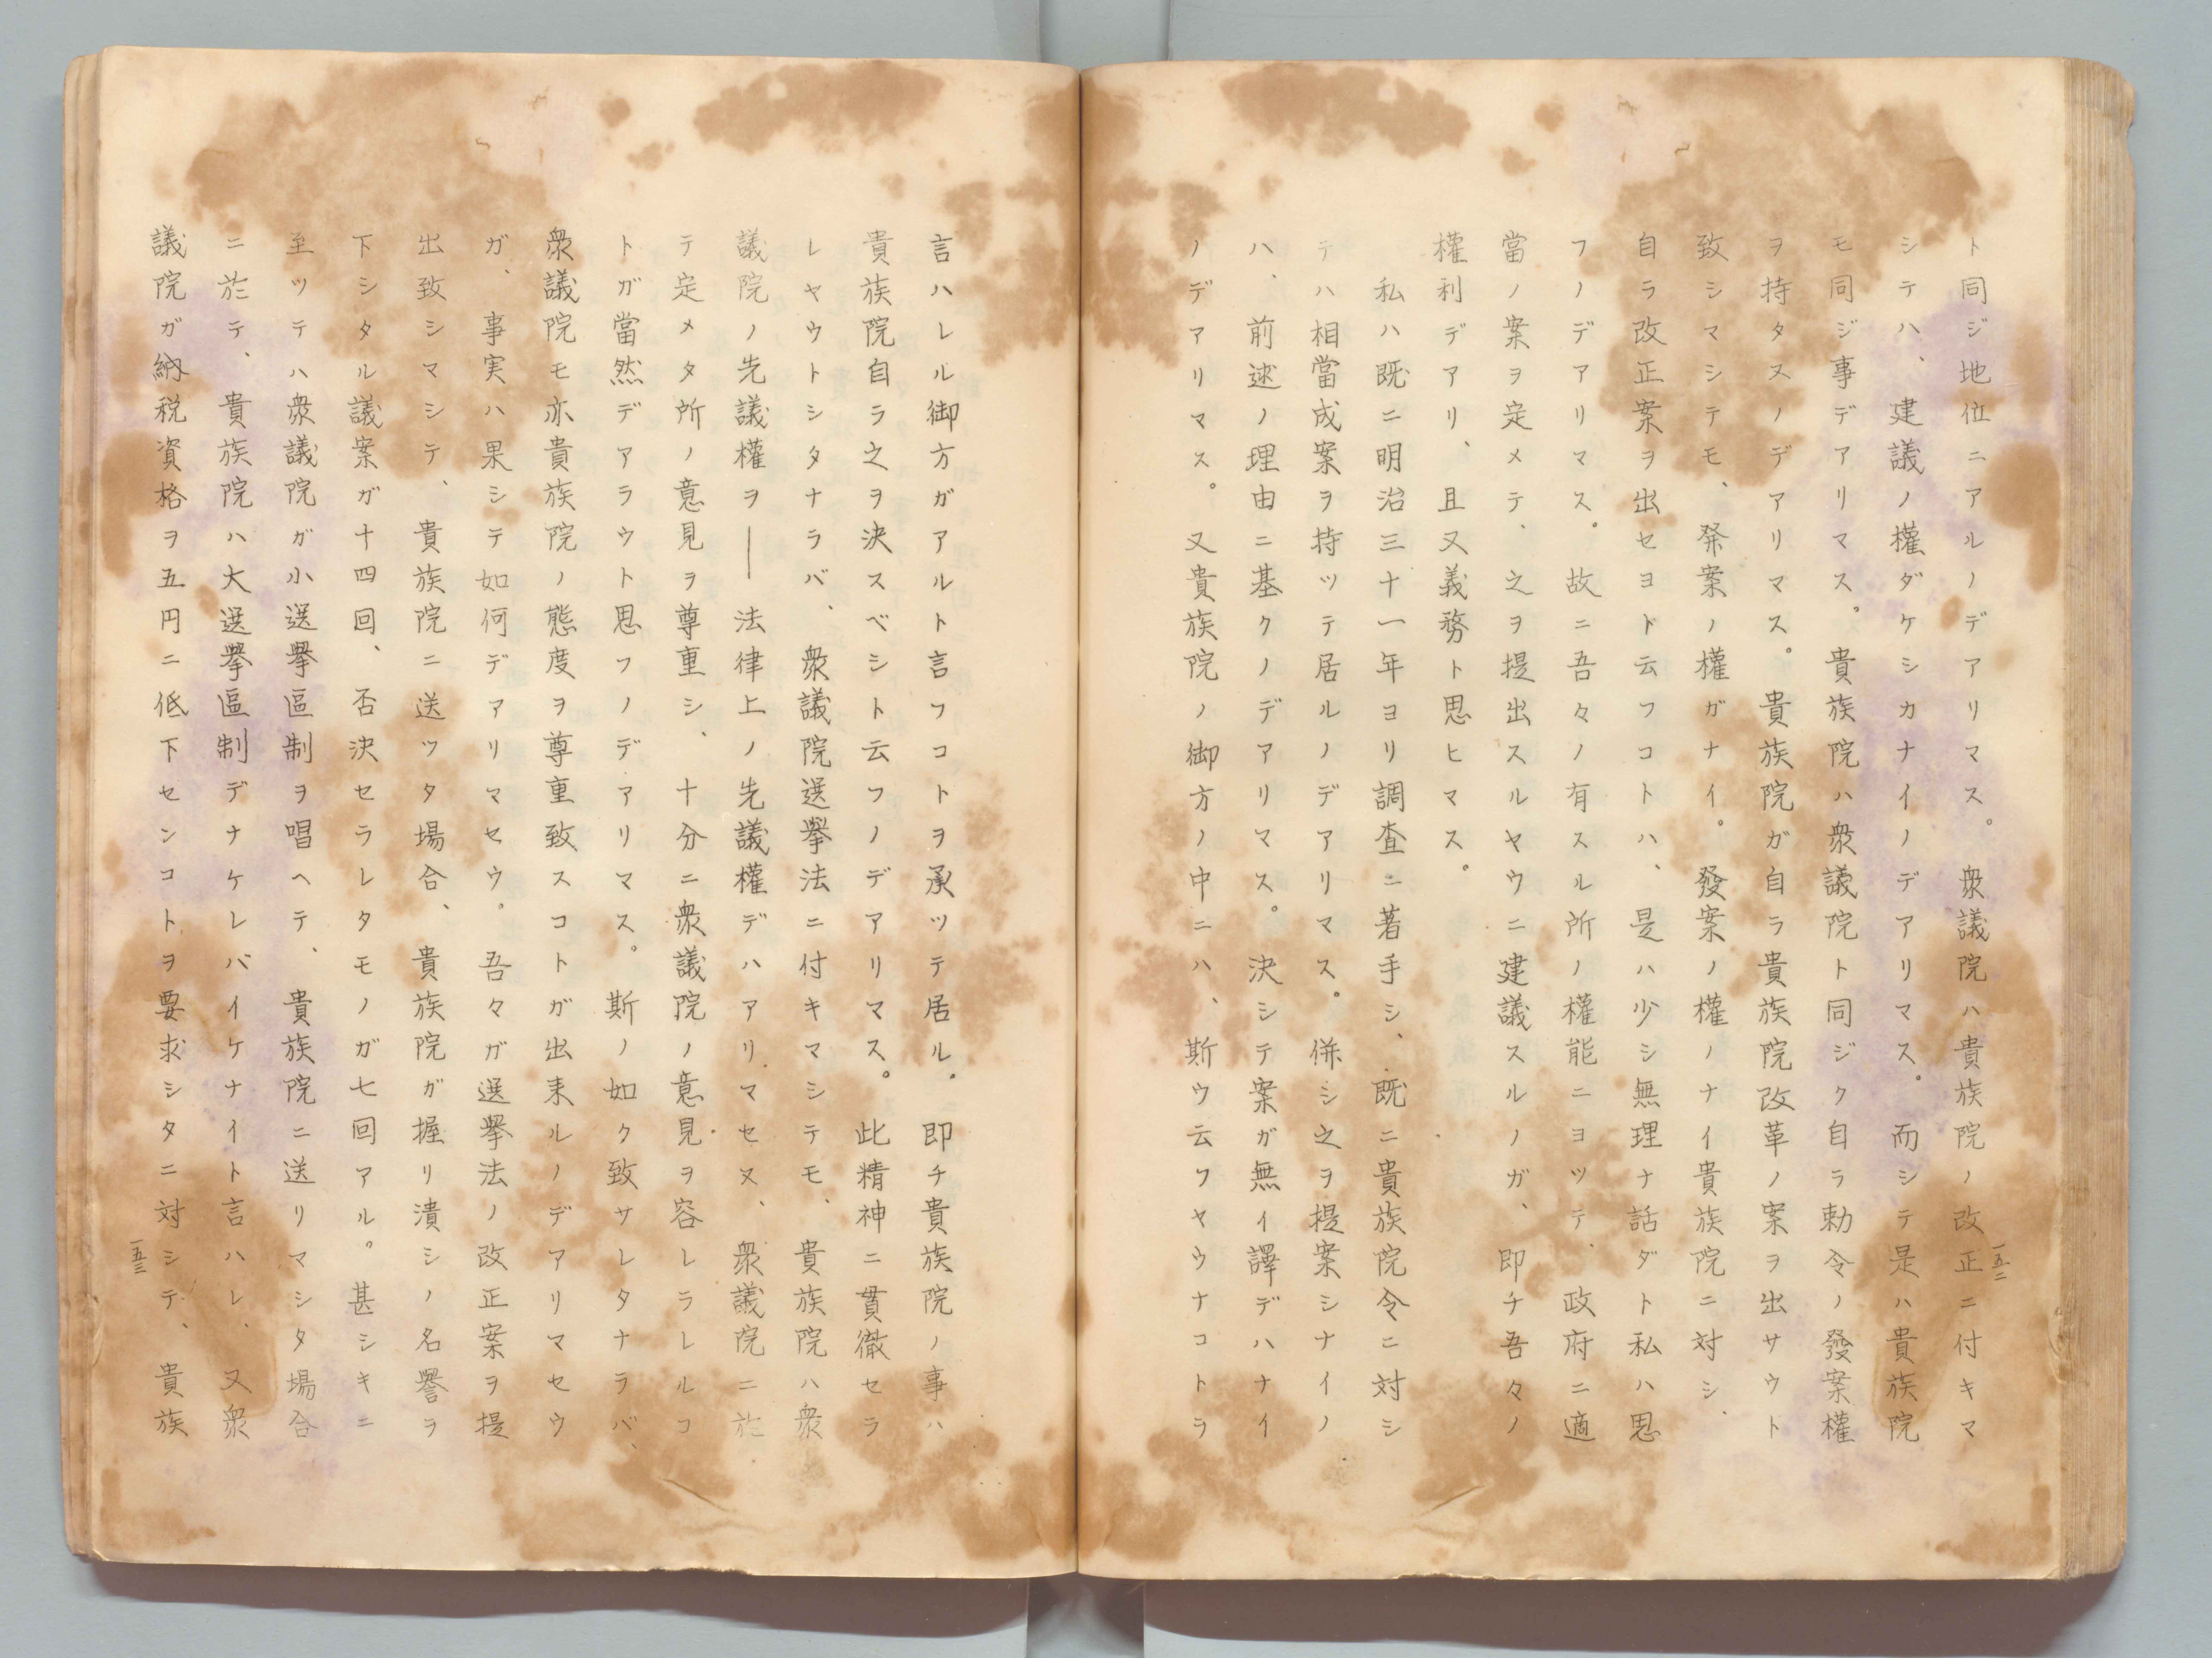 ト同ジ地位ニアルノデアリマス。衆議院ハ貴族院ノ改正ニ付キマ
シテハ、建議ノ權ダケシカナイノデアリマス。而シテ是ハ貴族院
モ同ジ事デアリマス。貴族院ハ衆議院ト同ジク自ラ勅令ノ發案權
ヲ持タヌノデアリマス。貴族院ガ自ラ貴族院改革ノ案ヲ出サウト
致シマシテモ、発案ノ權ガナイ。發案ノ權ノナイ貴族院ニ対シ、
自ラ改正案ヲ出セヨト云フコトハ、是ハ少シ無理ナ話ダト私ハ思
フノデアリマス。故ニ吾々ノ有スル所ノ權能ニヨッテ、政府ニ適
當ノ案ヲ定メテ、之ヲ提出スルヤウニ建議スルノガ、即チ吾々ノ
權利デアリ、且又義務ト思ヒマス。
私ハ既ニ明治三十一年ヨリ調査ニ著手シ、既ニ貴族院令ニ対シ
テハ相當成案ヲ持ッテ居ルノデアリマス。併シ之ヲ提案シナイノ
ハ、前述ノ理由ニ基クノデアリマス。決シテ案ガ無イ譯デハナイ
ノデアリマス。又貴族院ノ御方ノ中ニハ、斯ウ云フヤウナコトラ
一五二
言ハレル御方ガアルト言フコトヲ承ッテ居ル。即チ貴族院ノ事ハ
貴族院自ラ之ヲ決スベシト云フノデアリマス。此精神ニ貫徹セラ
レヤウトシタナラバ、衆議院選挙法ニ付キマシテモ、貴族院ハ衆
議院ノ先議權ヲ――法律上ノ先議權デハアリマセヌ、衆議院ニ於
テ定メタ所ノ意見ヲ尊重シ、十分ニ衆議院ノ意見ヲ容レラレルコ
トガ當然デアラウト思フノデアリマス。斯ノ如ク致サレタナラバ、
衆議院モ亦貴族院ノ態度ヲ尊重致スコトガ出来ルノデアリマセウ
ガ、事実ハ果シテ如何デアリマセウ。吾々ガ選挙法ノ改正案ヲ提
出致シマシテ、貴族院ニ送ッタ場合、貴族院ガ握リ潰シノ名譽ラ
下シタル議案ガ十四回、否決セラレタモノガ七回アル。甚シキニ
至ッテハ衆議院ガ小選挙區制ヲ唱ヘテ、貴族院ニ送リマシタ場合
ニ於テ、貴族院ハ大選挙區制デナケレバイケナイト言ハレ、又衆
議院ガ納税資格ヲ五円ニ低下センコトヲ要求シタニ対シテ、貴族
一五三